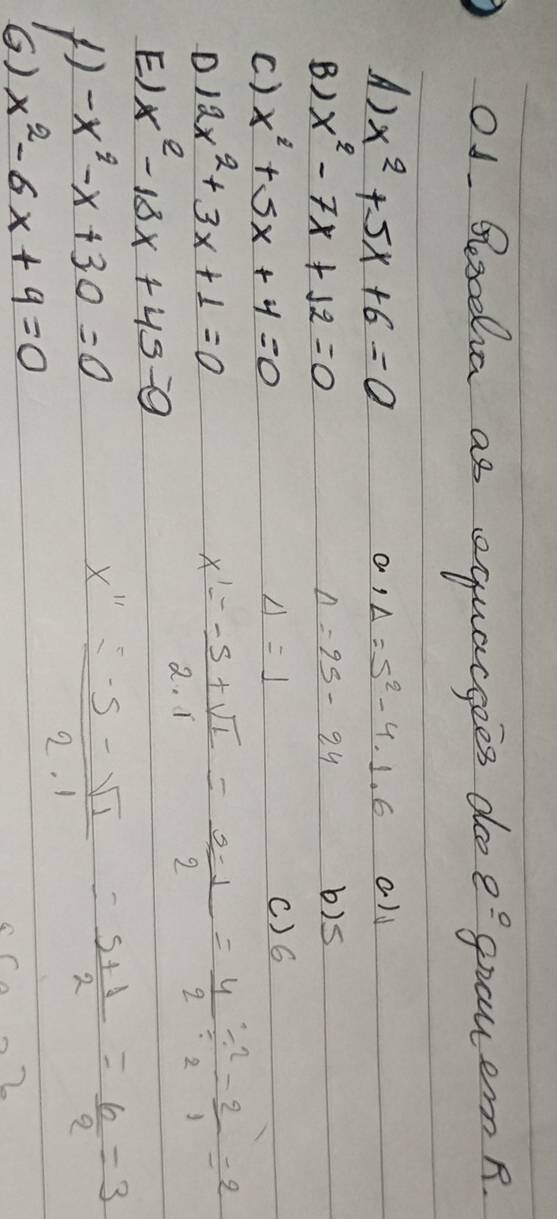 01- Resolva as equações do 2º grau em R.
A) x² + 5x + 6 = 0
B) x² - 7x + 12 = 0
C) x² + 5x + 4 = 0
D) 2x² + 3x + 1 = 0
E) x² - 18x + 45 = 0
f) - x² - x + 30 = 0
G) x² - 6x + 9 = 0
a, Δ = 5² - 4 . 1 . 6 a) 1
Δ = 25 - 24 b) 5
Δ = 1 c) 6
x' = -5 + √1 / 2 . 1 = 5 - 1 / 2 = 4 / 2 ÷ 2 / 2 = 2 / 1 = 2
x'' = -5 - √1 / 2 . 1 = 5 + 1 / 2 = 6 / 2 = 3